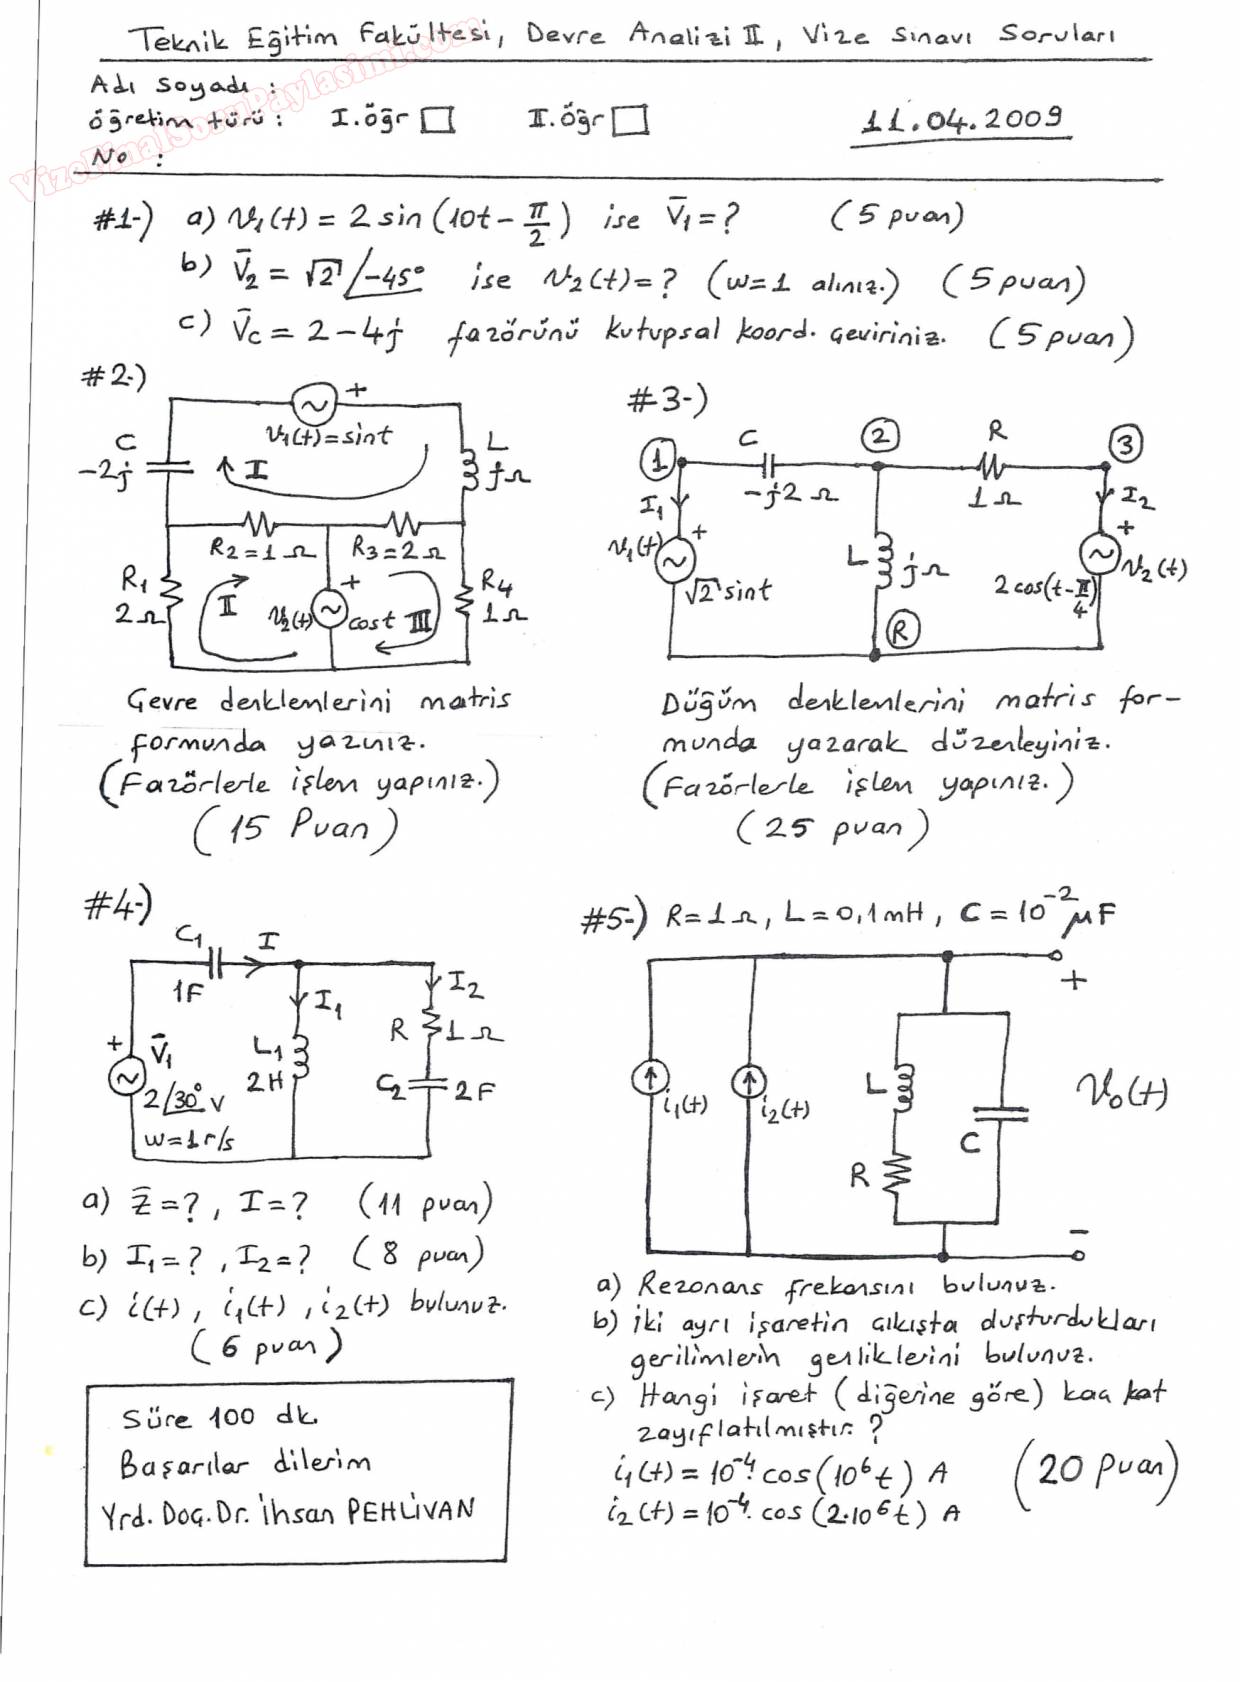 Teknik Eğitim Fakültesi, Devre Analizi II, Vize Sınavı Soruları
VizeFinalSoruPaylasimi.com
Adı Soyadı :
öğretim türü : I.öğr II.öğr 11.04.2009
No :
#1-) a) v₁(t) = 2 sin (10t - π/2) ise V̄₁ = ? (5 puan)
b) V̄₂ = √2 /-45° ise v₂(t) = ? (w=1 alınız.) (5 puan)
c) V̄c = 2 - 4j fazörünü kutupsal koord. çeviriniz. (5 puan)
#2-)
+
v₁(t) = sint
C
-2j
I
L
jΩ
R₂ = 1 Ω
R₃ = 2 Ω
R₁
2Ω
II
+
v₂(t)
cost
III
R₄
1Ω
Çevre denklemlerini matris
formunda yazınız.
(Fazörlerle işlem yapınız.)
(15 Puan)
#3-)
1
C
-j2 Ω
2
R
1Ω
3
I₁
I₂
v₁(t)
+
√2 sint
L
jΩ
+
v₂(t)
2 cos(t-π/4)
R
Düğüm denklemlerini matris for-
munda yazarak düzenleyiniz.
(Fazörlerle işlem yapınız.)
(25 puan)
#4-)
C₁
1F
I
I₁
I₂
R
1Ω
+
V̄₁
2/30° V
w=1 r/s
L₁
2H
C₂
2F
a) Z̄ = ? , I = ? (11 puan)
b) I₁ = ? , I₂ = ? (8 puan)
c) i(t) , i₁(t) , i₂(t) bulunuz.
(6 puan)
Süre 100 dk.
Başarılar dilerim
Yrd. Doç. Dr. İhsan PEHLİVAN
#5-) R = 1Ω , L = 0,1mH , C = 10⁻² μF
+
i₁(t)
i₂(t)
L
R
C
v₀(t)
-
a) Rezonans frekansını bulunuz.
b) İki ayrı işaretin çıkışta duşturdukları
gerilimlerin genliklerini bulunuz.
c) Hangi işaret (diğerine göre) kaç kat
zayıflatılmıştır. ?
i₁(t) = 10⁻⁴. cos(10⁶t) A
i₂(t) = 10⁻⁴. cos(2.10⁶t) A
(20 puan)